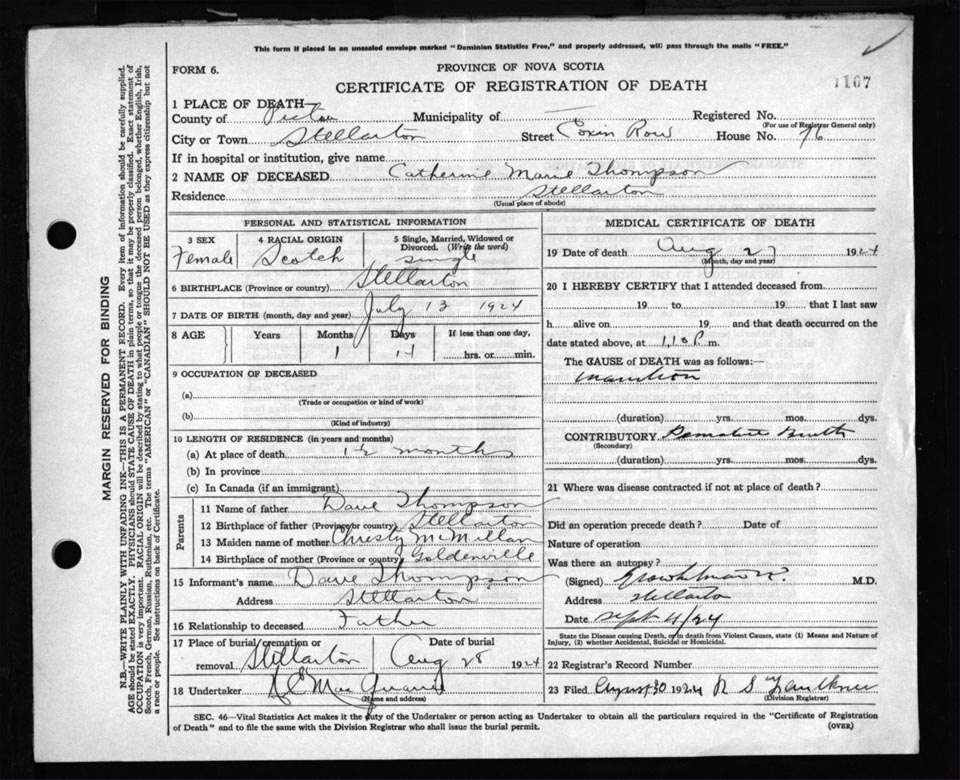 This form if placed in an unsealed envelope marked "Dominion Statistics Free," and properly addressed, will pass through the mails "FREE."
FORM 6.
PROVINCE OF NOVA SCOTIA
CERTIFICATE OF REGISTRATION OF DEATH
1107
1 PLACE OF DEATH—
County of Pictou Municipality of — Registered No.
(For use of Registrar General only)
City or Town Stellarton Street Row House No. 76
If in hospital or institution, give name
2 NAME OF DECEASED Catherine Marie Thompson
Residence Stellarton
(Usual place of abode)
PERSONAL AND STATISTICAL INFORMATION
3 SEX Female
4 RACIAL ORIGIN Scotch
5 Single, Married, Widowed or Divorced. (Write the word) Single
6 BIRTHPLACE (Province or country) Stellarton
7 DATE OF BIRTH (month, day and year) July 13 1924
8 AGE Years Months 1 Days 14 If less than one day, hrs. or min.
9 OCCUPATION OF DECEASED
(a)
(Trade or occupation or kind of work)
(b)
(Kind of industry)
10 LENGTH OF RESIDENCE (in years and months)
(a) At place of death 1½ months
(b) In province
(c) In Canada (if an immigrant)
Parents
11 Name of father Dave Thompson
12 Birthplace of father (Province or country) Stellarton
13 Maiden name of mother Christy McMillan
14 Birthplace of mother (Province or country) Goldenville
15 Informant's name Dave Thompson
Address Stellarton
16 Relationship to deceased Father
17 Place of burial, cremation or removal Stellarton Date of burial Aug 28 1924
18 Undertaker
(Name and address)
MEDICAL CERTIFICATE OF DEATH
19 Date of death Aug 27 1924
(Month, day and year)
20 I HEREBY CERTIFY that I attended deceased from
19 to 19 that I last saw
h alive on 19 and that death occurred on
date stated above, at m.
The CAUSE OF DEATH was as follows:—
Inanition
(duration) yrs. mos. dys.
CONTRIBUTORY Premature Birth
(Secondary)
(duration) yrs. mos. dys.
21 Where was disease contracted if not at place of death?
Did an operation precede death? Date of
Nature of operation
Was there an autopsy?
(Signed) M.D.
Address Stellarton
Date Sept 4/24
State the Disease causing Death, or in death from Violent Causes, state (1) Means and Nature of
Injury, (2) whether Accidental, Suicidal or Homicidal.
22 Registrar's Record Number
23 Filed August 30 1924 R S Faulkner
(Division Registrar)
SEC. 46—Vital Statistics Act makes it the duty of the Undertaker or person acting as Undertaker to obtain all the particulars required in the "Certificate of Registration
of Death" and to file the same with the Division Registrar who shall issue the burial permit.
(OVER)
MARGIN RESERVED FOR BINDING
N.B.—WRITE PLAINLY WITH UNFADING INK—THIS IS A PERMANENT RECORD. Every item of information should be carefully supplied.
AGE should be stated EXACTLY. PHYSICIANS should STATE CAUSE OF DEATH in plain terms, so that it may be properly classified. Exact statement of
OCCUPATION is very important. RACIAL ORIGIN will be described by stating to what people or tongue the deceased person belonged, whether English, Irish,
Scotch, French, German, Russian, Ruthenian, etc. The terms "AMERICAN" or "CANADIAN" SHOULD NOT BE USED as they express citizenship but not
a race or people. See instructions on back of Certificate.